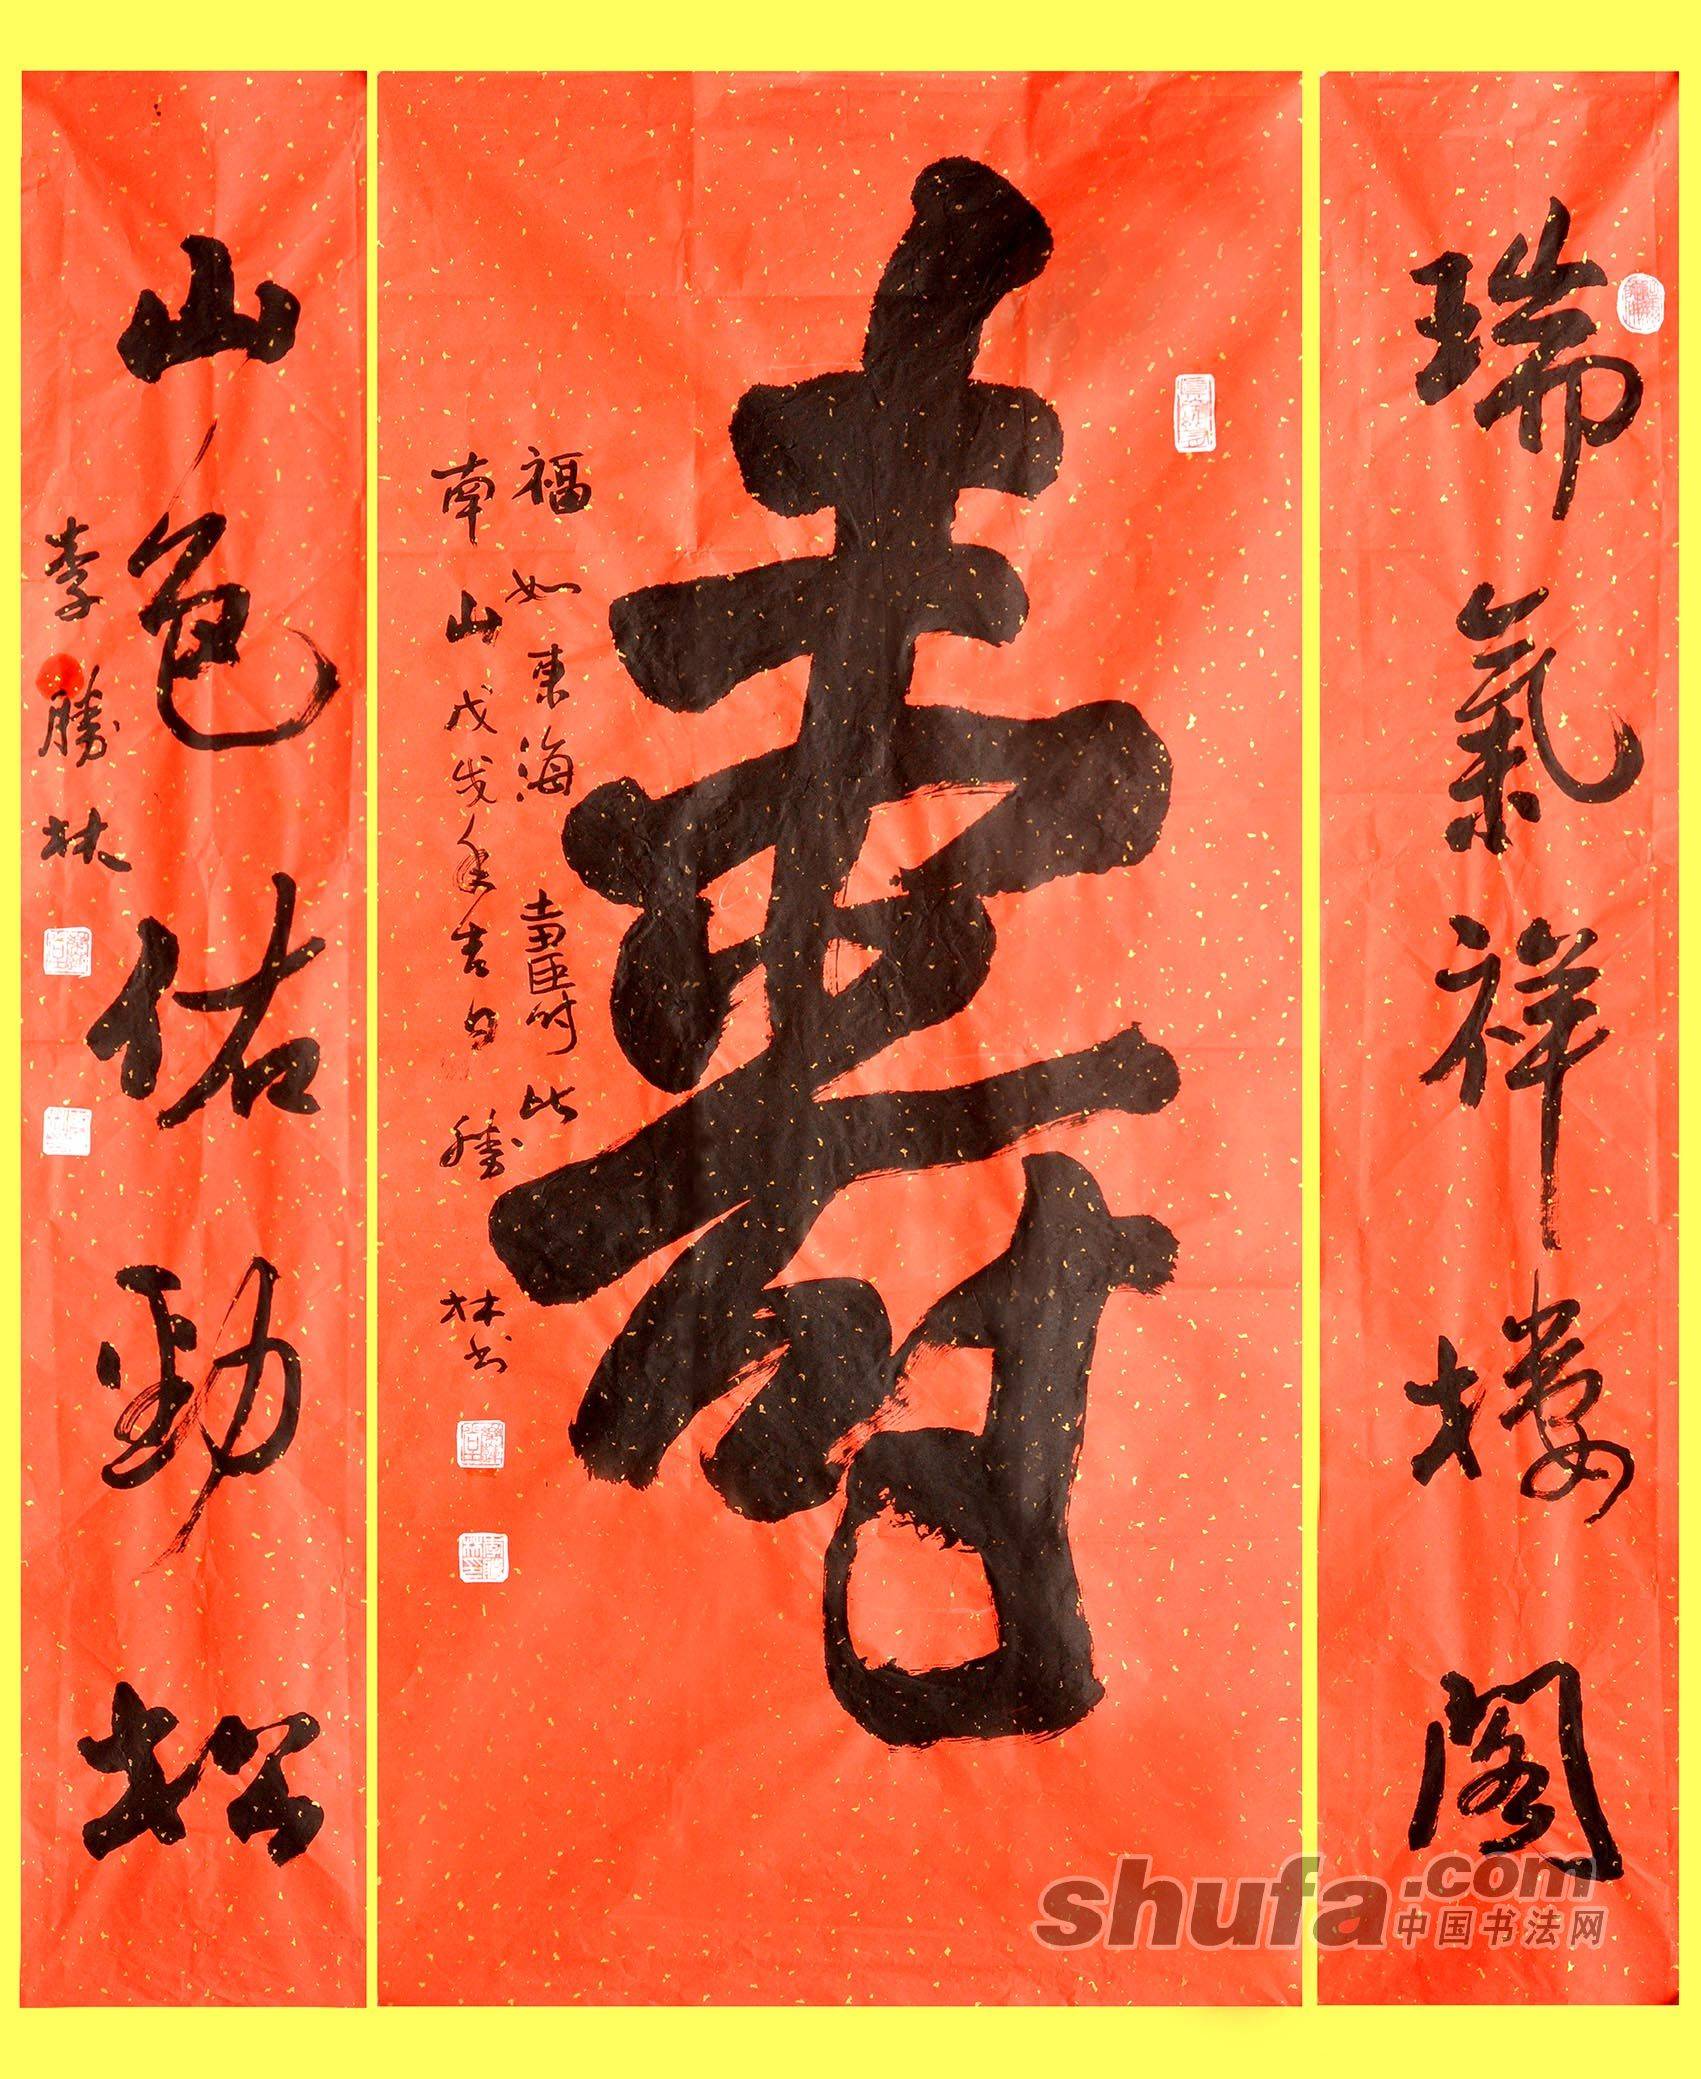 瑞氣祥樓閣
壽
福如東海壽比
南山戊戌年吉日勝林书
山色佑勁松
李勝林
shufa.com
中国书法网